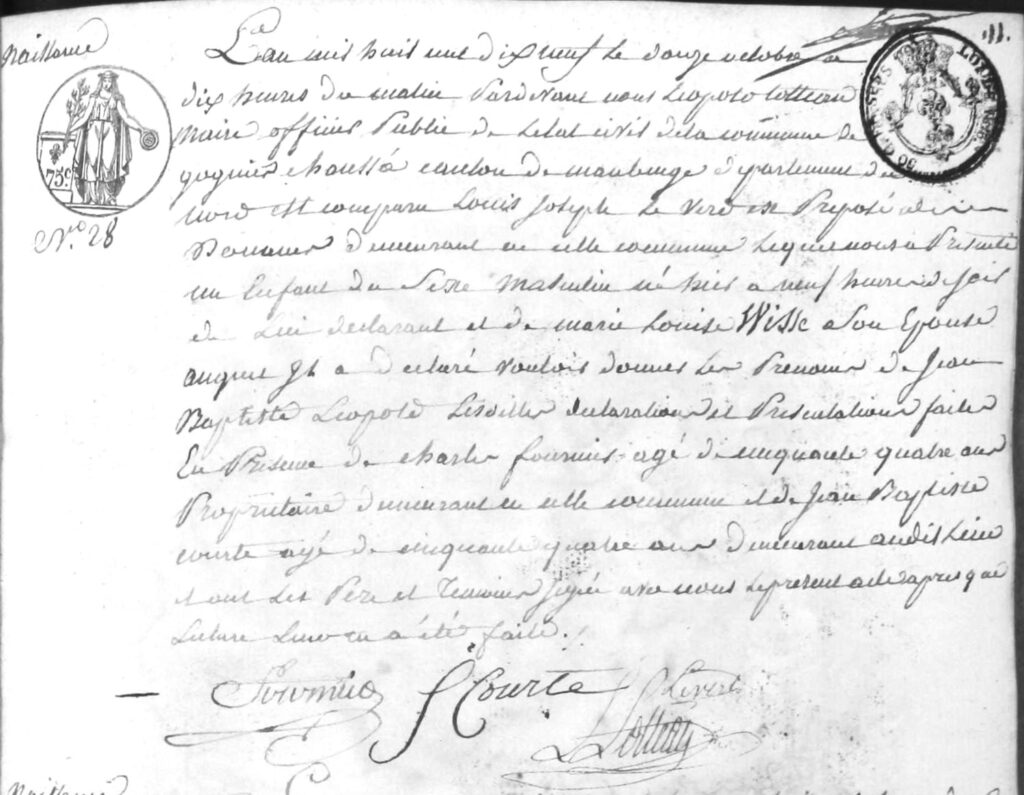 Naissance
N.ro 28
75c.
L'an mil huit cent dix neuf le douze octobre a
dix heures du matin Pardevant nous Leopold
maire officier Public de Letat civil de la commune de
gognies chaussé canton de maubeuge departement du
Nord est comparu Louis Joseph Le Vere Preposé
Douanes demeurant en cette commune Lequel nous a Presenté
un Enfant du Sexe masculin né hier a neuf heures de soir
de Lui declarant et de marie Louise Wissc a Son Epouse
auquel Jl a declaré vouloir donner Les Prenoms de Jean
Baptiste Leopold Lesdittes declaration et Presentation faites
En Presence de charles fournier agé de cinquante quatre ans
Proprietaire demeurant en cette commune et de Jean Baptiste
courte agé de cinquante quatre ans demeurant audit Lieu
et ont Les Pere et Temoins signé avec nous Le present acte apres que
Lecture Leur en a été faite.
Fournié J Courte Levere
Naissance